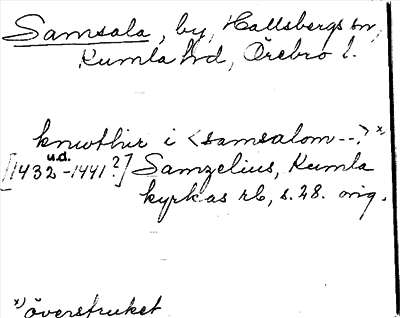 Samsala, by, Hallsbergs sn,
Kumla hd, Örebro l.
knwthir i <samsalom--.> x)
u.d.
[1432-1441?] Samzelius, Kumla
kyrkas rb, s. 28. orig.
x) överstruket